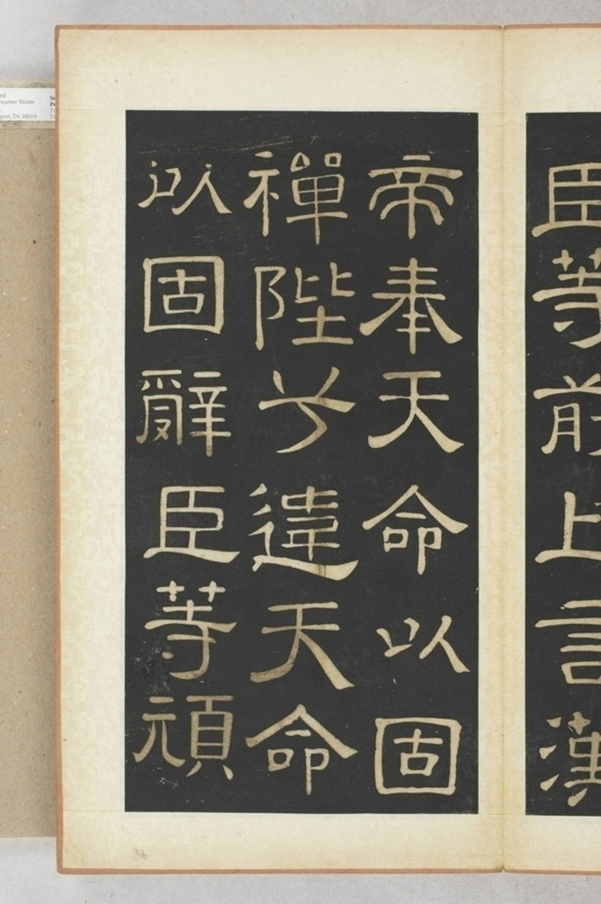 臣等前上言漢
帝奉天命以固
禪陛下違天命
以固辭臣等頑
sumer Waste
TN 38019